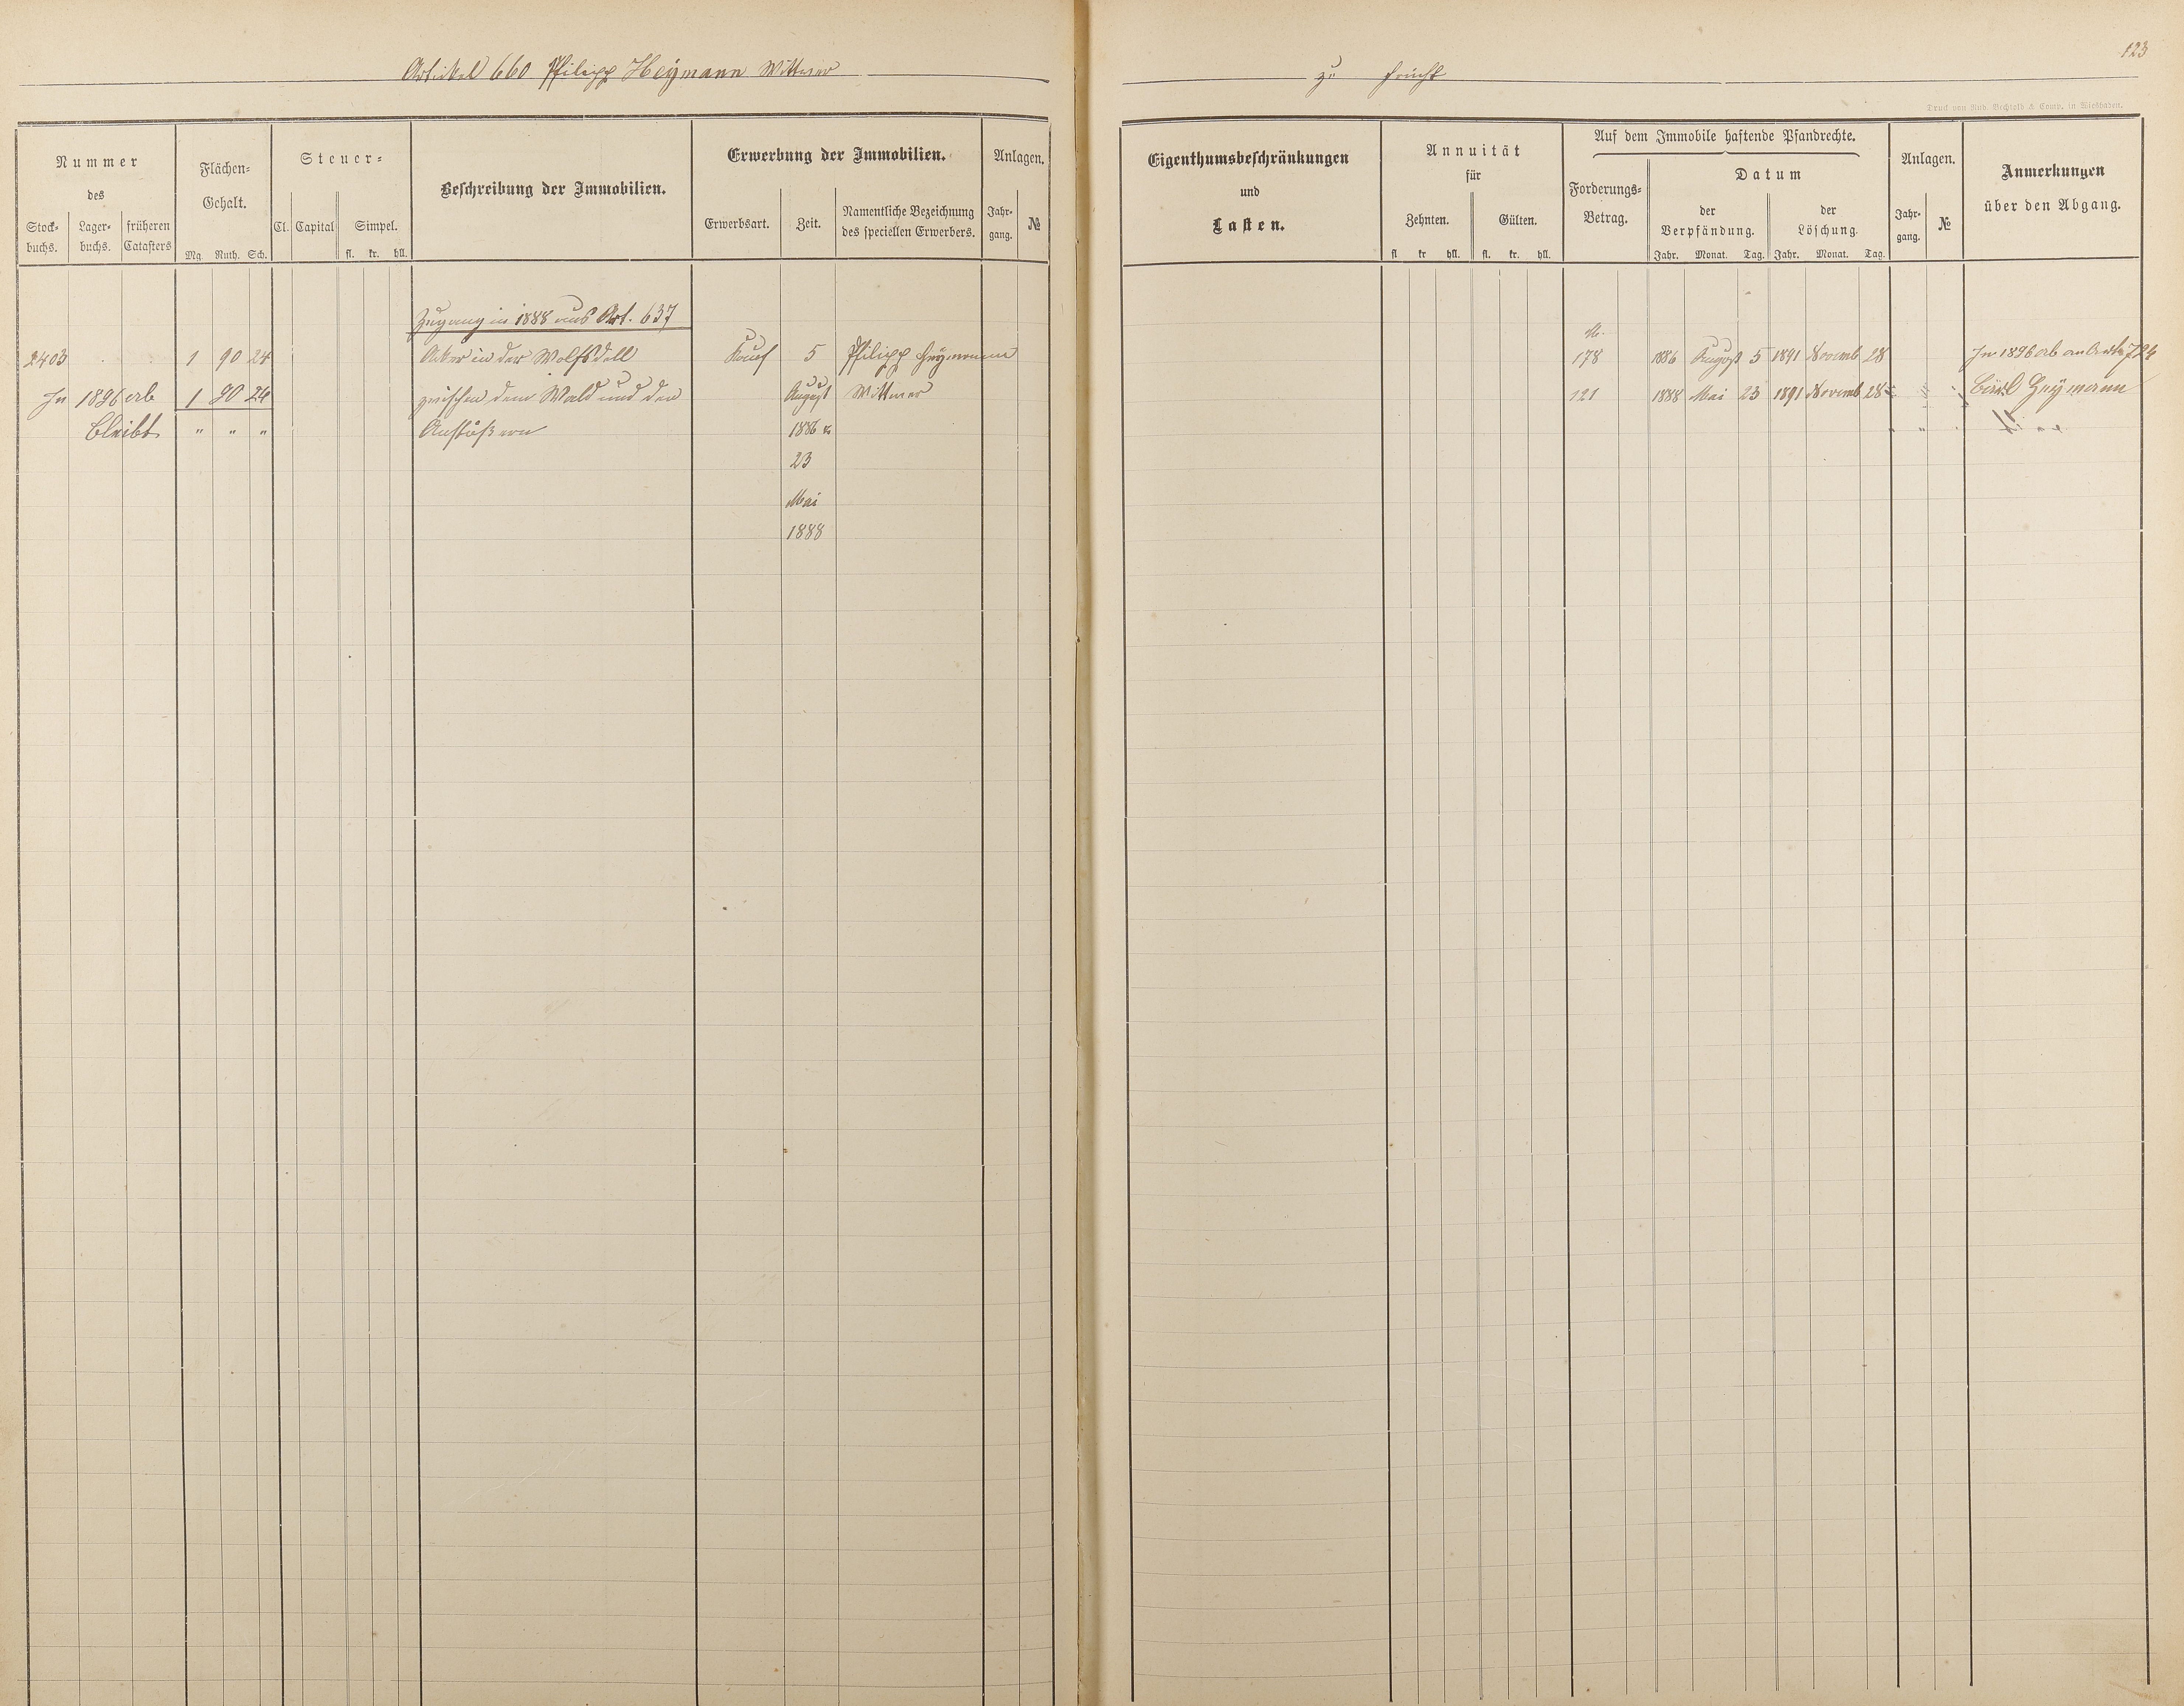 Artikel 660 Philipp Heymann Wittwer
Nummer
des
Stock-
buchs.
Lager-
buchs.
früheren
Catasters
Flächen-
Gehalt.
Mg. Ruth. Sch.
Steuer-
Cl. Capital Simpel.
fl. kr. hll.
Beschreibung der Immobilien.
Erwerbung der Immobilien.
Erwerbsart. Zeit.
Namentliche Bezeichnung
des speciellen Erwerbers.
Anlagen.
Jahr-
gang.
№
Zugang in 1888 aus Art. 637
2403 1 90 24 Acker in der Wolfsdell Kauf 5 Philipp Heymann
In 1896 ab 1 90 24 zwischen dem Wald und den August Wittwer
bleibt " " " Anstößern 1886 &
23
Mai
1888
zu Frücht
123
Druck von Rud. Bechtold & Comp. in Wiesbaden.
Eigenthumsbeschränkungen
und
Lasten.
Annuität
für
Zehnten. Gülten.
fl kr hll. fl. kr. hll.
Auf dem Immobile haftende Pfandrechte.
Forderungs-
Betrag.
Datum
der
Verpfändung.
Jahr. Monat. Tag.
der
Löschung.
Jahr. Monat. Tag.
Anlagen.
Jahr-
gang.
№
Anmerkungen
über den Abgang.
M.
178 1886 August 5 1891 Novemb 28 In 1896 ab an Artk 724
121 1888 Mai 23 1891 Novemb 28 Heymann